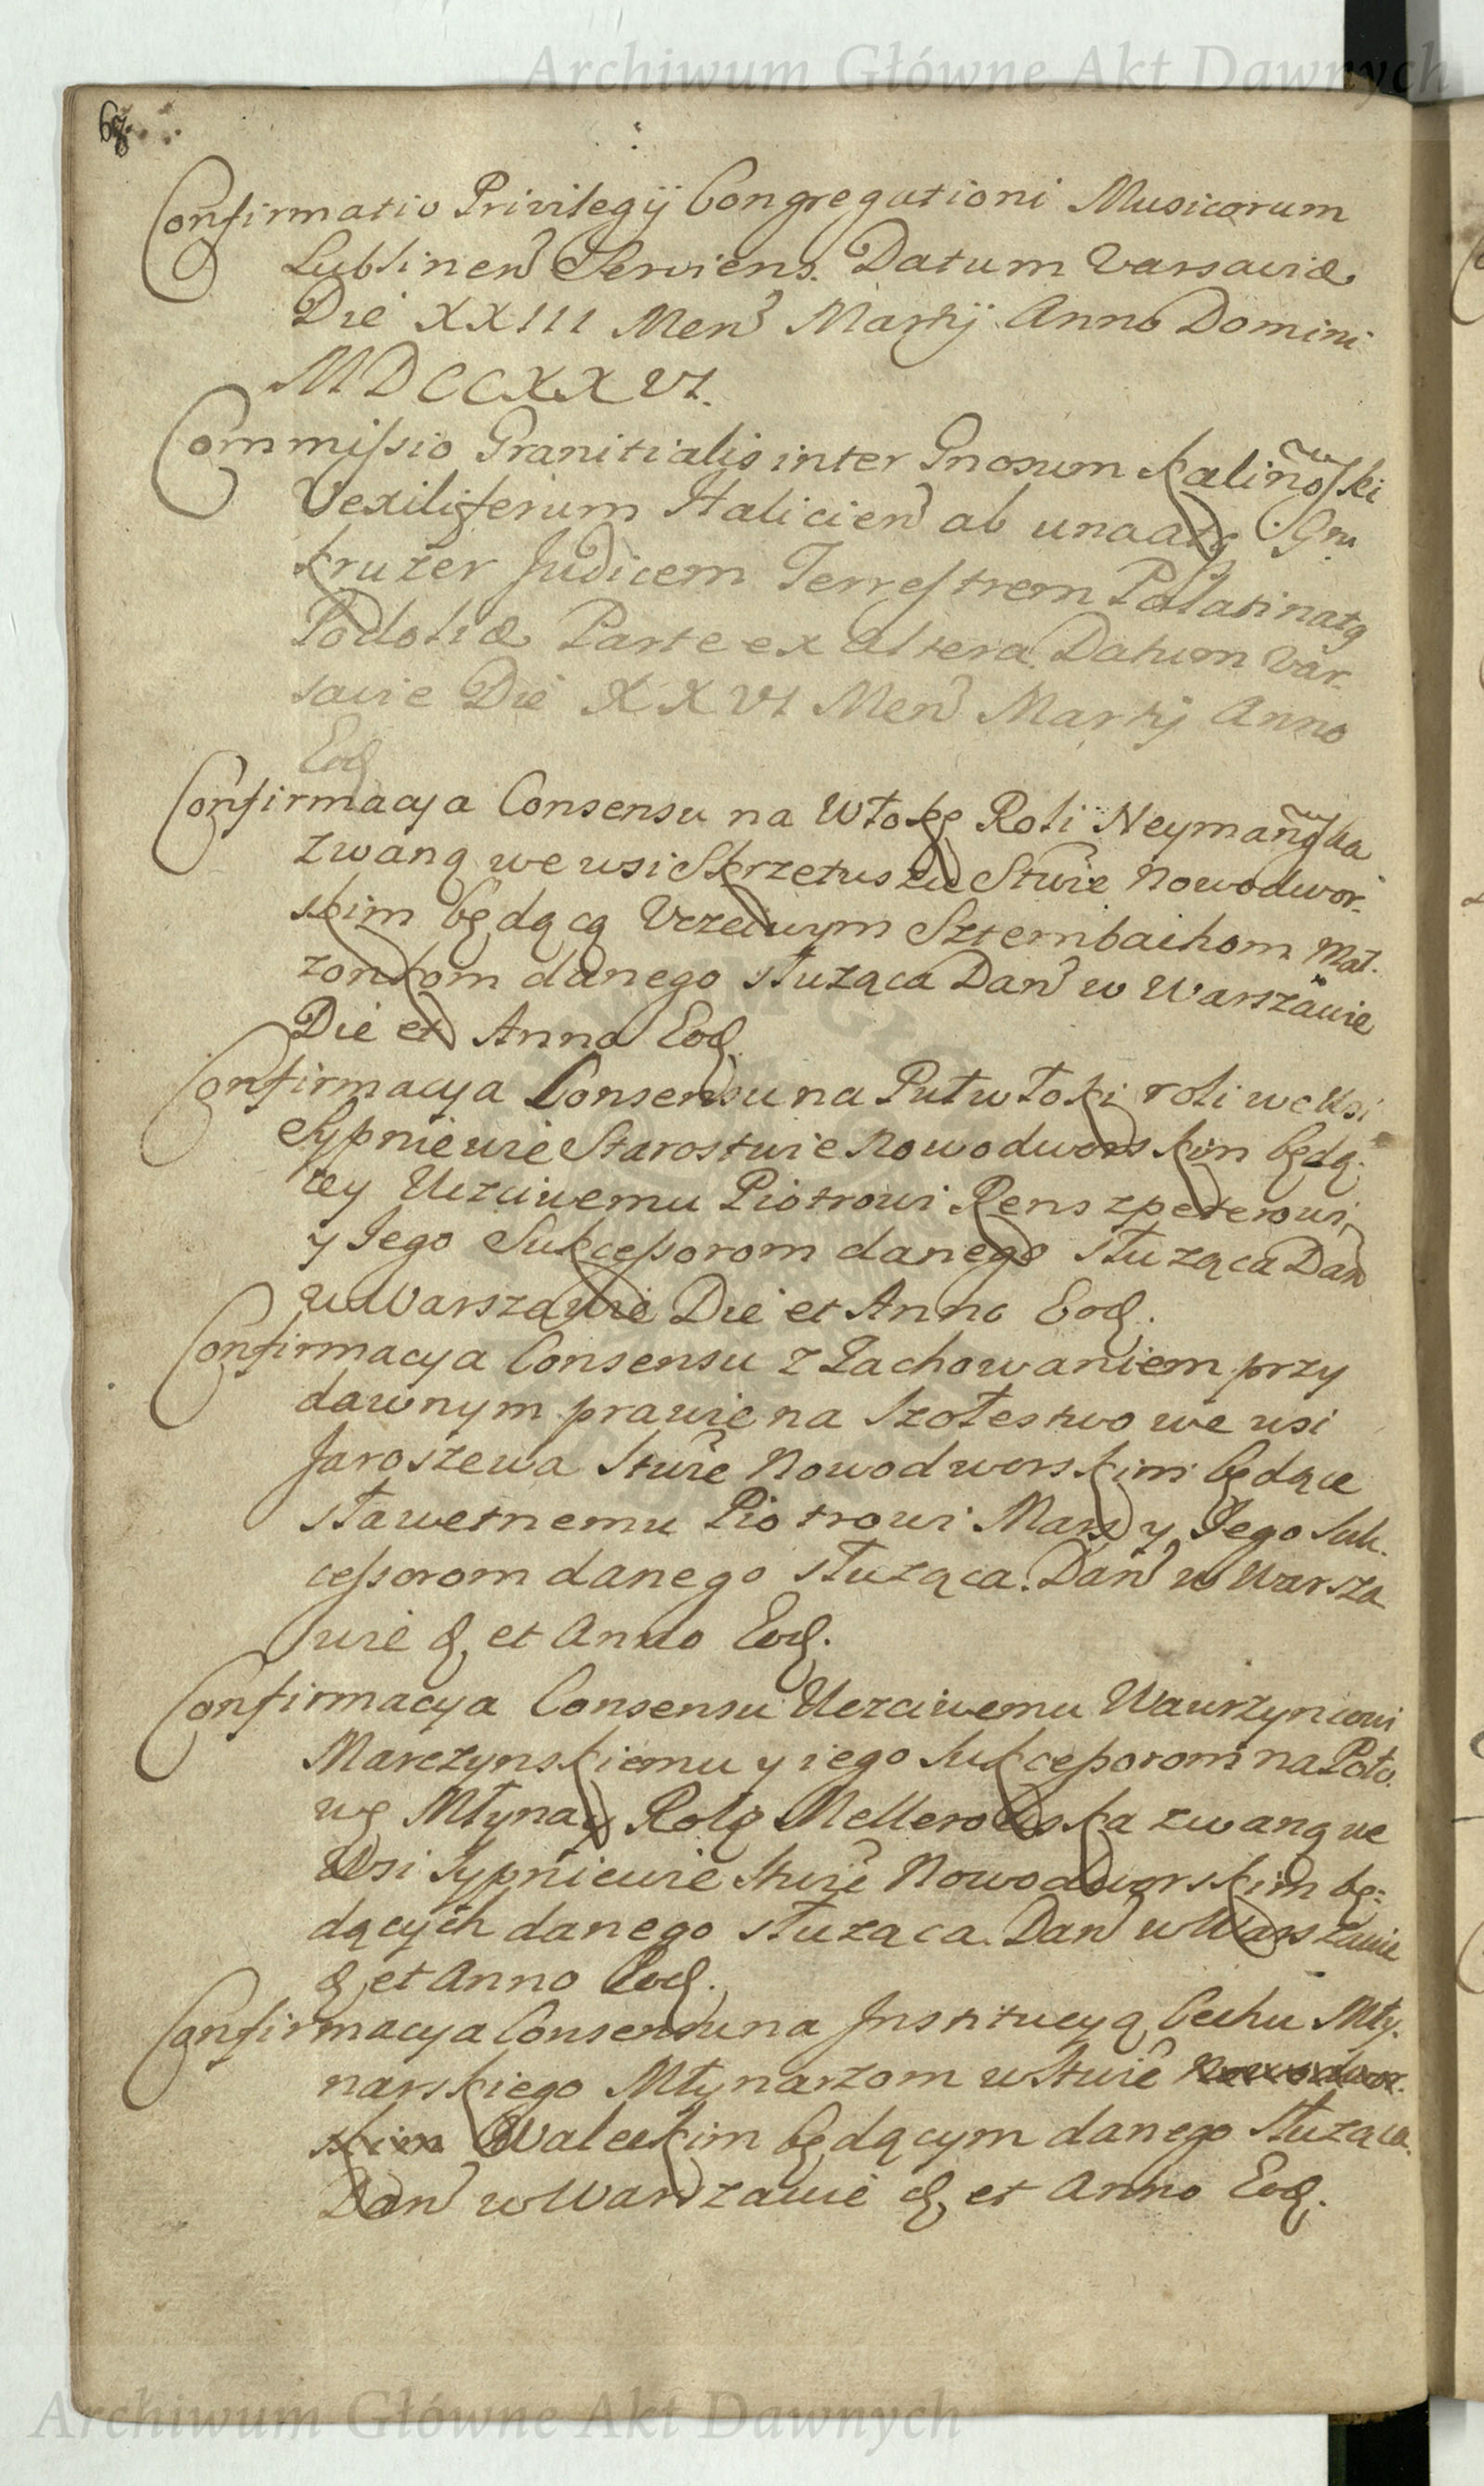 Archiwum Główne Akt Dawnych
68.
Confirmatio Privilegÿ Congregationi Musicorum
Lublinen Serviens. Datum Varsaviæ
Die XXIII Men Martÿ Anno Domini
MDCCXXVI.
Commissio Granitialis inter Gnosum Kalinowski
Vexiliferum Halicien ab una atq Gnm
Kruzer Judicem Terrestrem Palatinatq
Podoliæ Parte ex altera. Datum Var.
savie Die XXVI Men Martij Anno
Eod
Confirmacya Consensu na Włokę Roli Neymanska
zwaną we wsi Skrzetuszu Stwie Nowodwor.
skim będącą Uczciwym Szternbaihom Mał.
zonkom danego słuząca Dan w Warszawie
Die et Anno Eod.
Confirmacya Consensu na Puł włoki roli we Wsi
Sypniewie Starostwie Nowodworskim będą.
cey Uczciwemu Piotrowi Renszpeterowi
y Jego Sukcessorom danego słuząca Dan
w Warszawie Die et Anno Eod.
Confirmacya Consensu z Zachowaniem przy
dawnym prawie na Szołestwo we wsi
Jaroszewa Stwie Nowodworskim będące
sławetnemu Piotrowi Mars y Jego Suk.
cessorom danego słuząca. Dan w Warsza
wie d, et Anno Eod.
Confirmacya Consensu Uczciwemu Wawrzyncowi
Marczynskiemu y iego Sukcessorom na Poło.
wę Młyna y Rolą Mellerowska zwaną we
Wsi Sypniewie Stwie Nowodworskim bę:
dących danego słuząca. Dan w Warszawie
d, et Anno Eod.
Confirmacya Consensu na Jnstitucyą Cechu Mły.
narskiego Młynarzom w Stwie Nowodwor.
skim Waleckim będącym danego słuząca.
Dan w Warszawie d, et Anno Eod.
Archiwum Główne Akt Dawnych